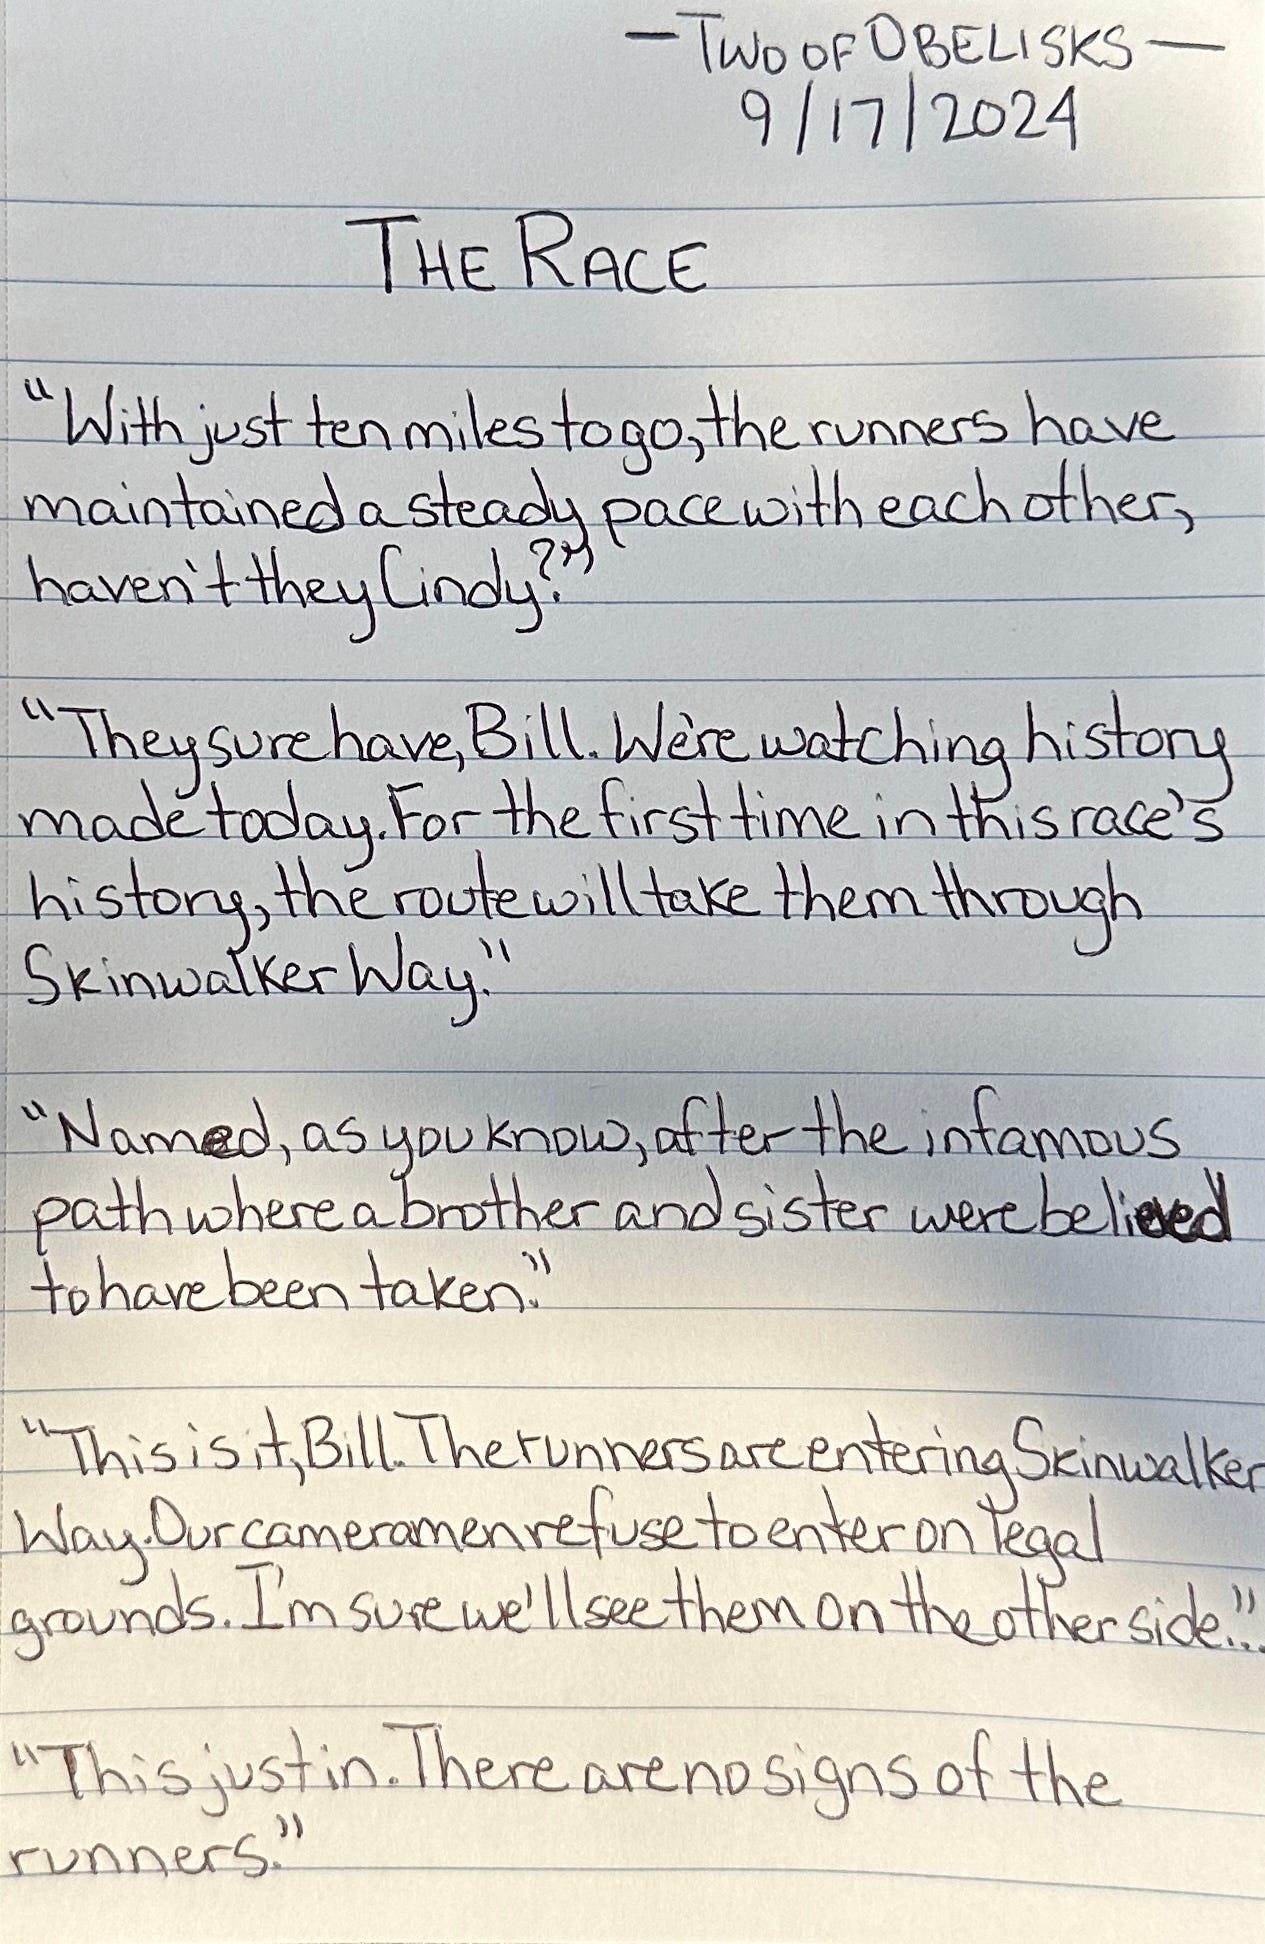 — TWO OF OBELISKS —
9/17/2024
THE RACE
"With just ten miles to go, the runners have
maintained a steady pace with each other,
haven't they Cindy?"
"They sure have, Bill. We're watching history
made today. For the first time in this race's
history, the route will take them through
Skinwalker Way."
"Named, as you know, after the infamous
path where a brother and sister were believed
to have been taken."
"This is it, Bill. The runners are entering Skinwalker
Way. Our cameramen refuse to enter on legal
grounds. I'm sure we'll see them on the other side..."
"This just in. There are no signs of the
runners."